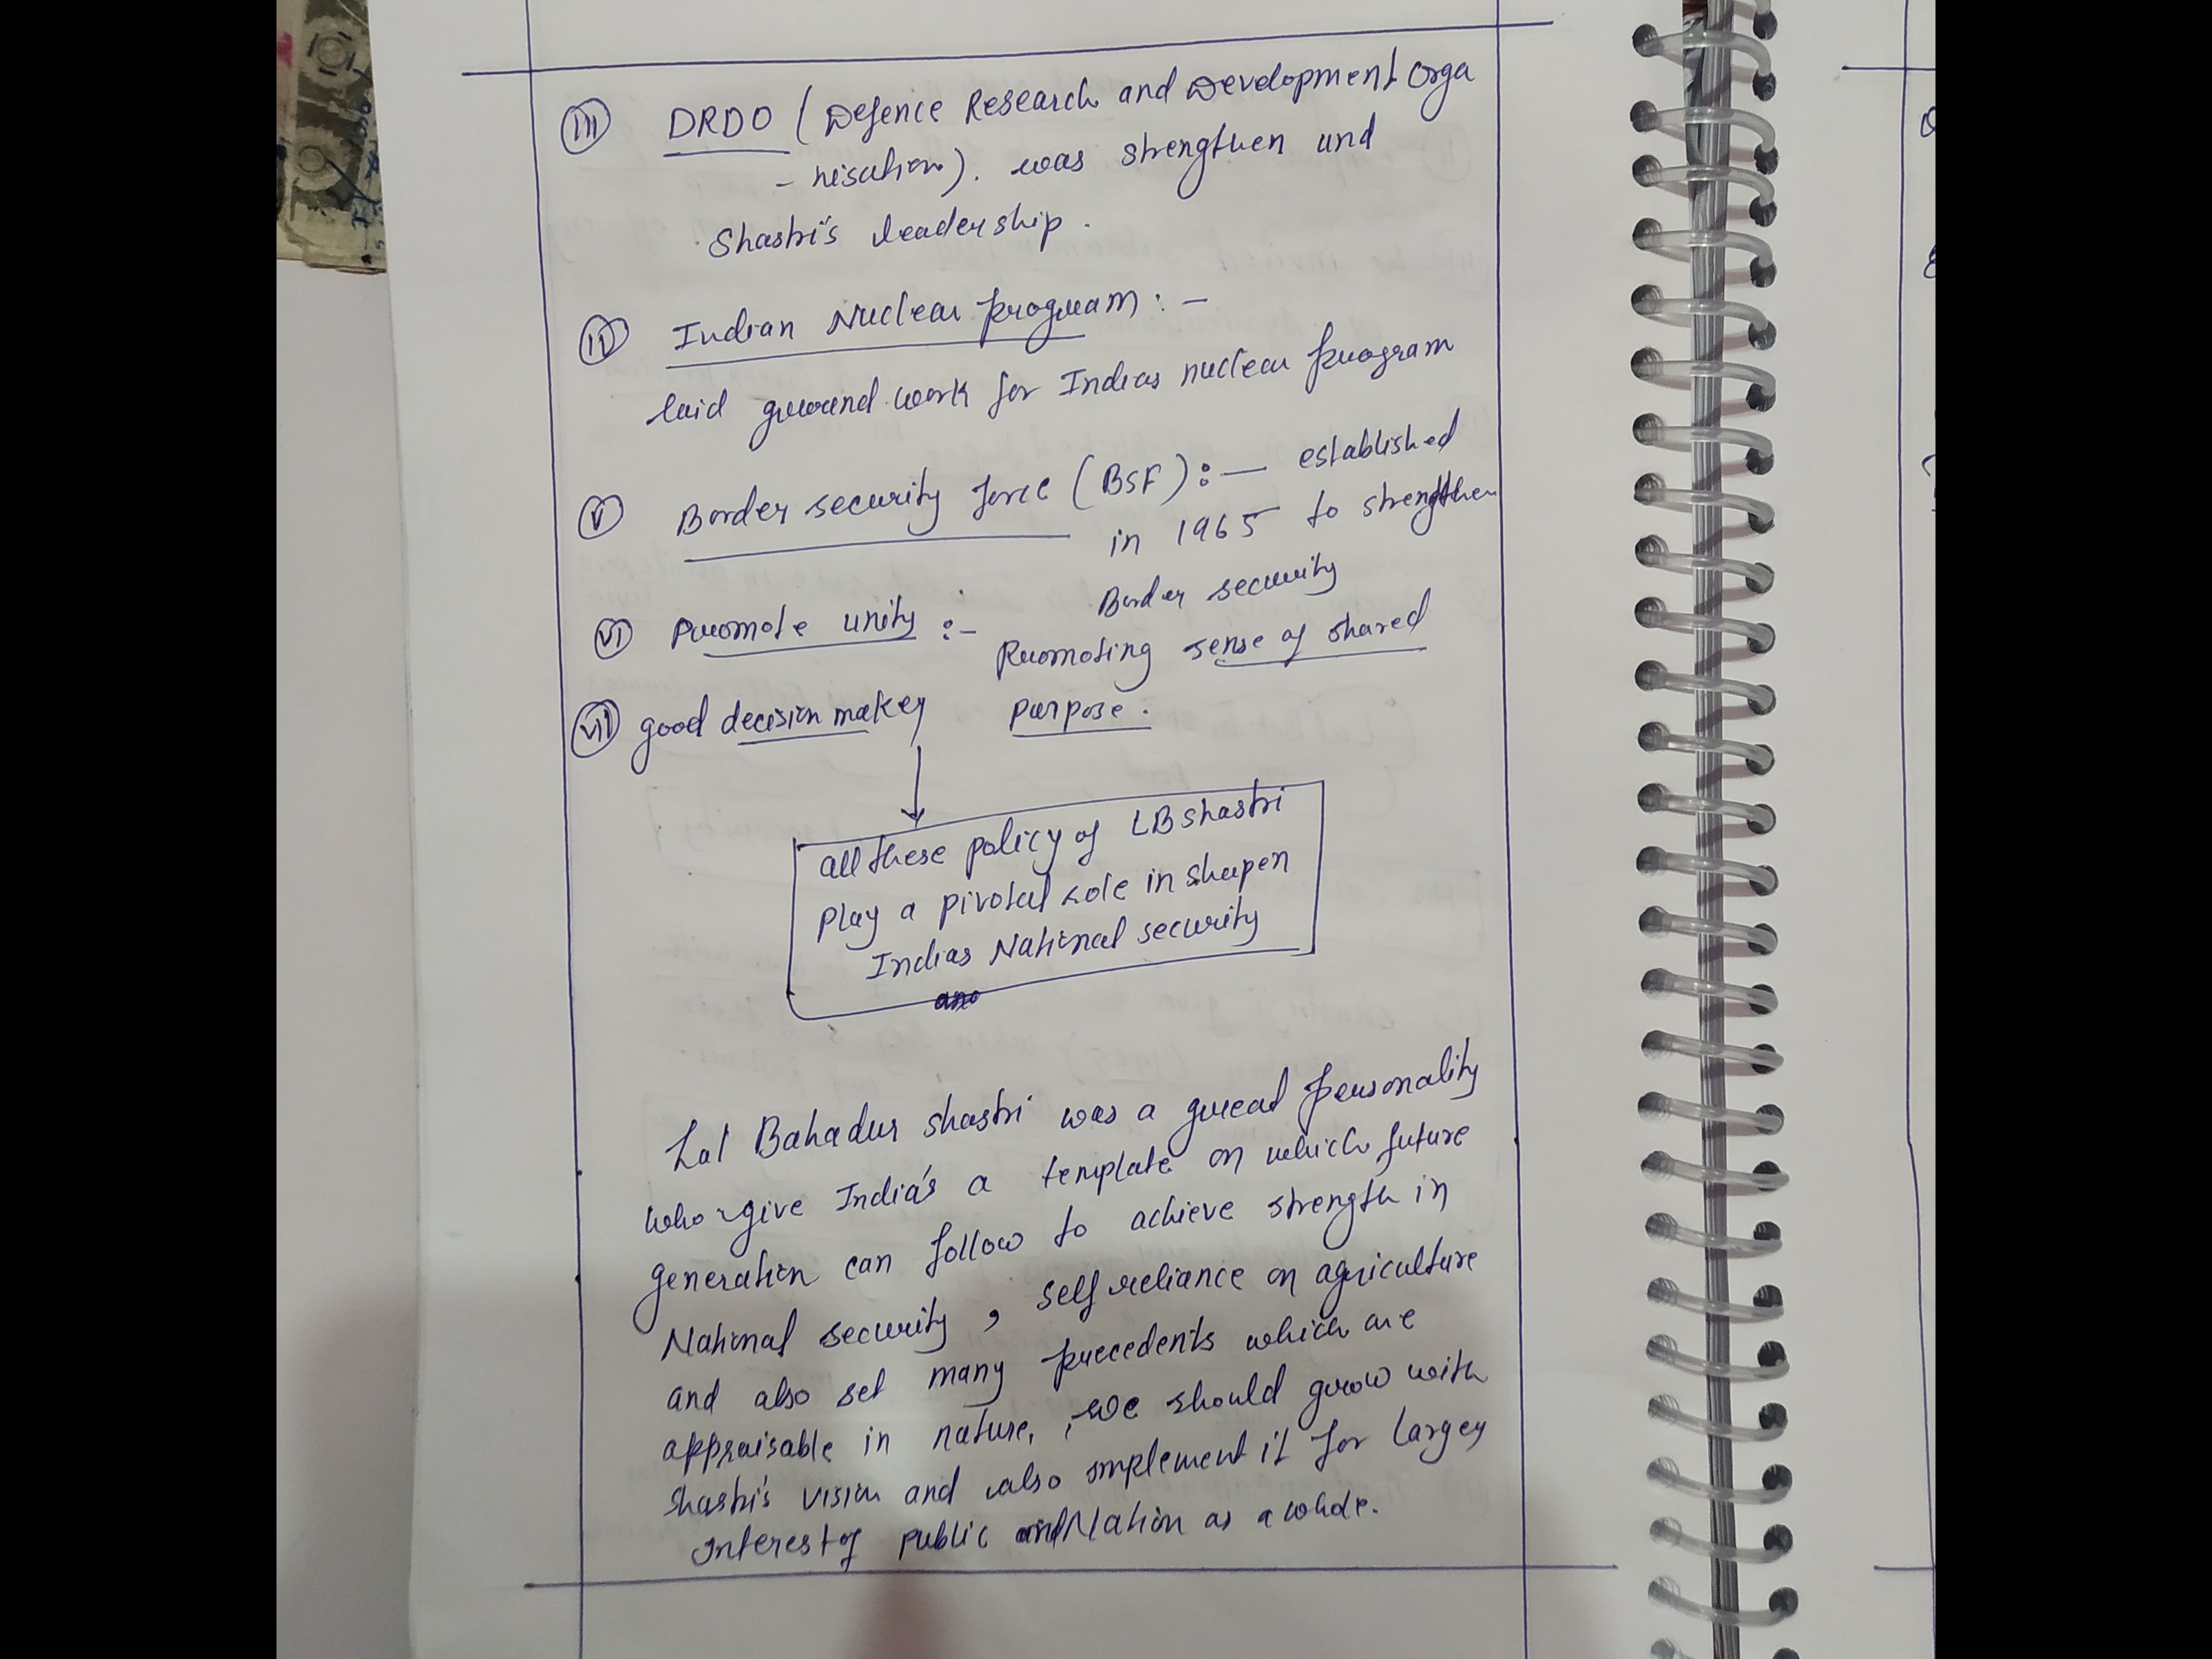 (iii) DRDO (Defence Research and Development Orga
- nisation). was strengthen und
Shastri's leadership.
Indian Nuclear program : -
laid ground work for Indias nuclear program
(v) Border security force (BSF) : — established
in 1965 to strengthen
Border security
(vi) Promote unity :- Promoting sense of shared
purpose.
(vii) good decision maker
all these policy of LB shastri
play a pivotal role in shapen
Indias National security
Lal Bahadur shastri was a great personality
who give India's a template on which future
generation can follow to achieve strength in
National security, self reliance on agriculture
and also set many precedents which are
appraisable in nature, we should grow with
shastri's vision and also implement it for larger
interest of public and Nation as a whole.